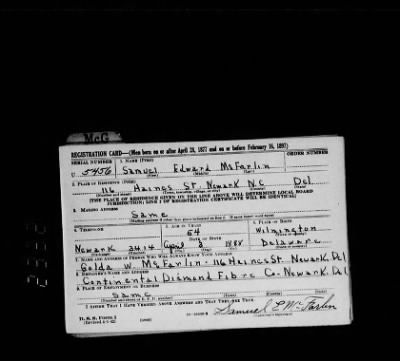 McG
REGISTRATION CARD—(Men born on or after April 28, 1877 and on or before February 16, 1897)
SERIAL NUMBER 1. NAME (Print) ORDER NUMBER
U 5456 Samuel Edward McFarlin
(First) (Middle) (Last)
2. PLACE OF RESIDENCE (Print)
116 Haines St. Newark N.C. Del
(Number and street) (Town, township, village, or city) (County) (State)
[THE PLACE OF RESIDENCE GIVEN ON THE LINE ABOVE WILL DETERMINE LOCAL BOARD
JURISDICTION; LINE 2 OF REGISTRATION CERTIFICATE WILL BE IDENTICAL]
3. MAILING ADDRESS
Same
4. TELEPHONE 5. AGE IN YEARS 6. PLACE OF BIRTH
54 Wilmington
DATE OF BIRTH
Newark 3414 8 1888 Delaware
7. NAME AND ADDRESS OF PERSON WHO WILL ALWAYS KNOW YOUR ADDRESS
Golda W. McFarlin - 116 Haines St. Newark. Del
8. EMPLOYER'S NAME AND ADDRESS
Continental Diamond Fibre Co. Newark. Del
9. PLACE OF EMPLOYMENT OR BUSINESS
Same
I AFFIRM THAT I HAVE VERIFIED ABOVE ANSWERS AND THAT THEY ARE TRUE.
D. S. S. Form 1
Samuel E McFarlin